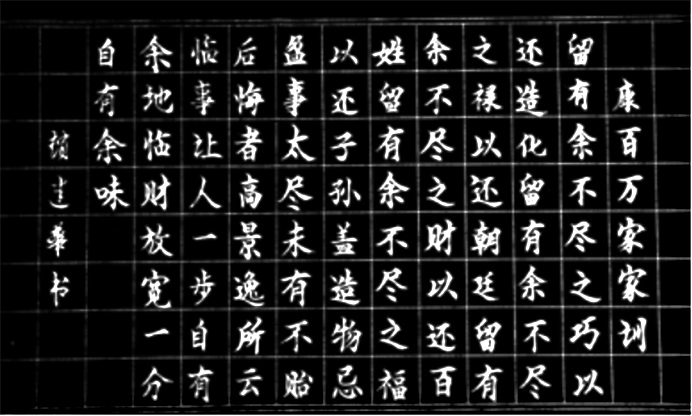 康百万家家训
留有余不尽之巧以
还造化留有余不尽
之禄以还朝廷留有
余不尽之财以还百
姓留有余不尽之福
以还子孙盖造物忌
盈事太尽未有不贻
后悔者高景逸所云
临事让人一步自有
余地临财放宽一分
自有余味
建华书